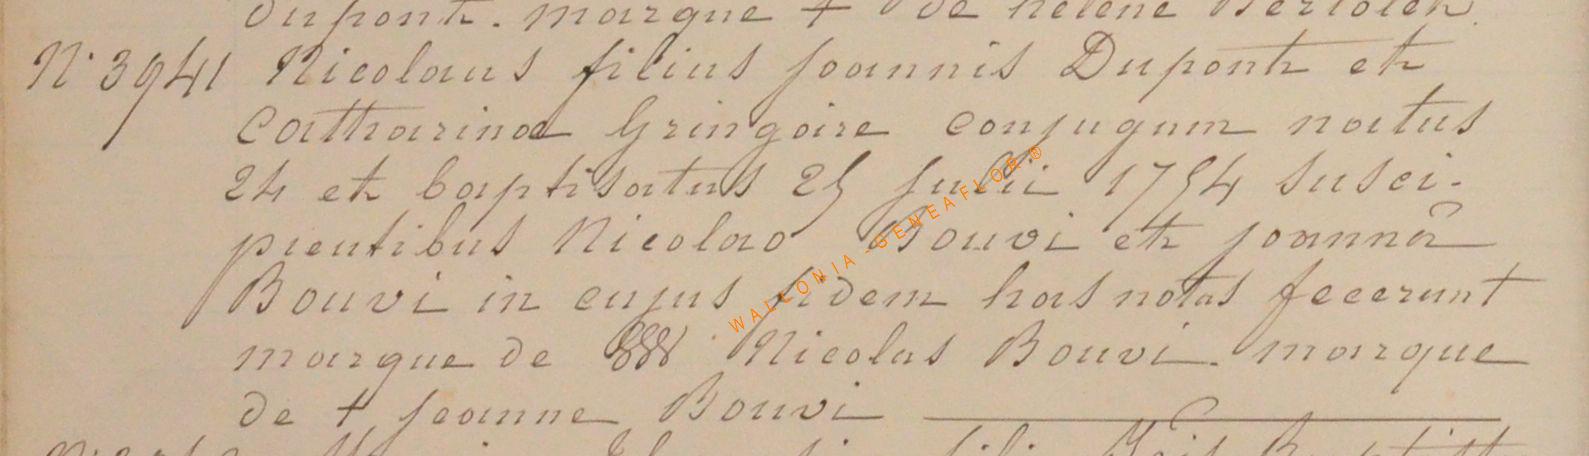 Dupont. marque + de hélène Bertolet.
N° 3941 Nicolaus filius Joannis Dupont et
Catharinae Gringoire conjugum natus
24 et baptisatus 25 Julii 1754 susci-
pientibus Nicolao Bouvi et Joannâ
Bouvi in cujus fidem has notas fecerunt
marque de Nicolas Bouvi. marque
de + Jeanne Bouvi
WALLONIA - GENEAFLOR ®